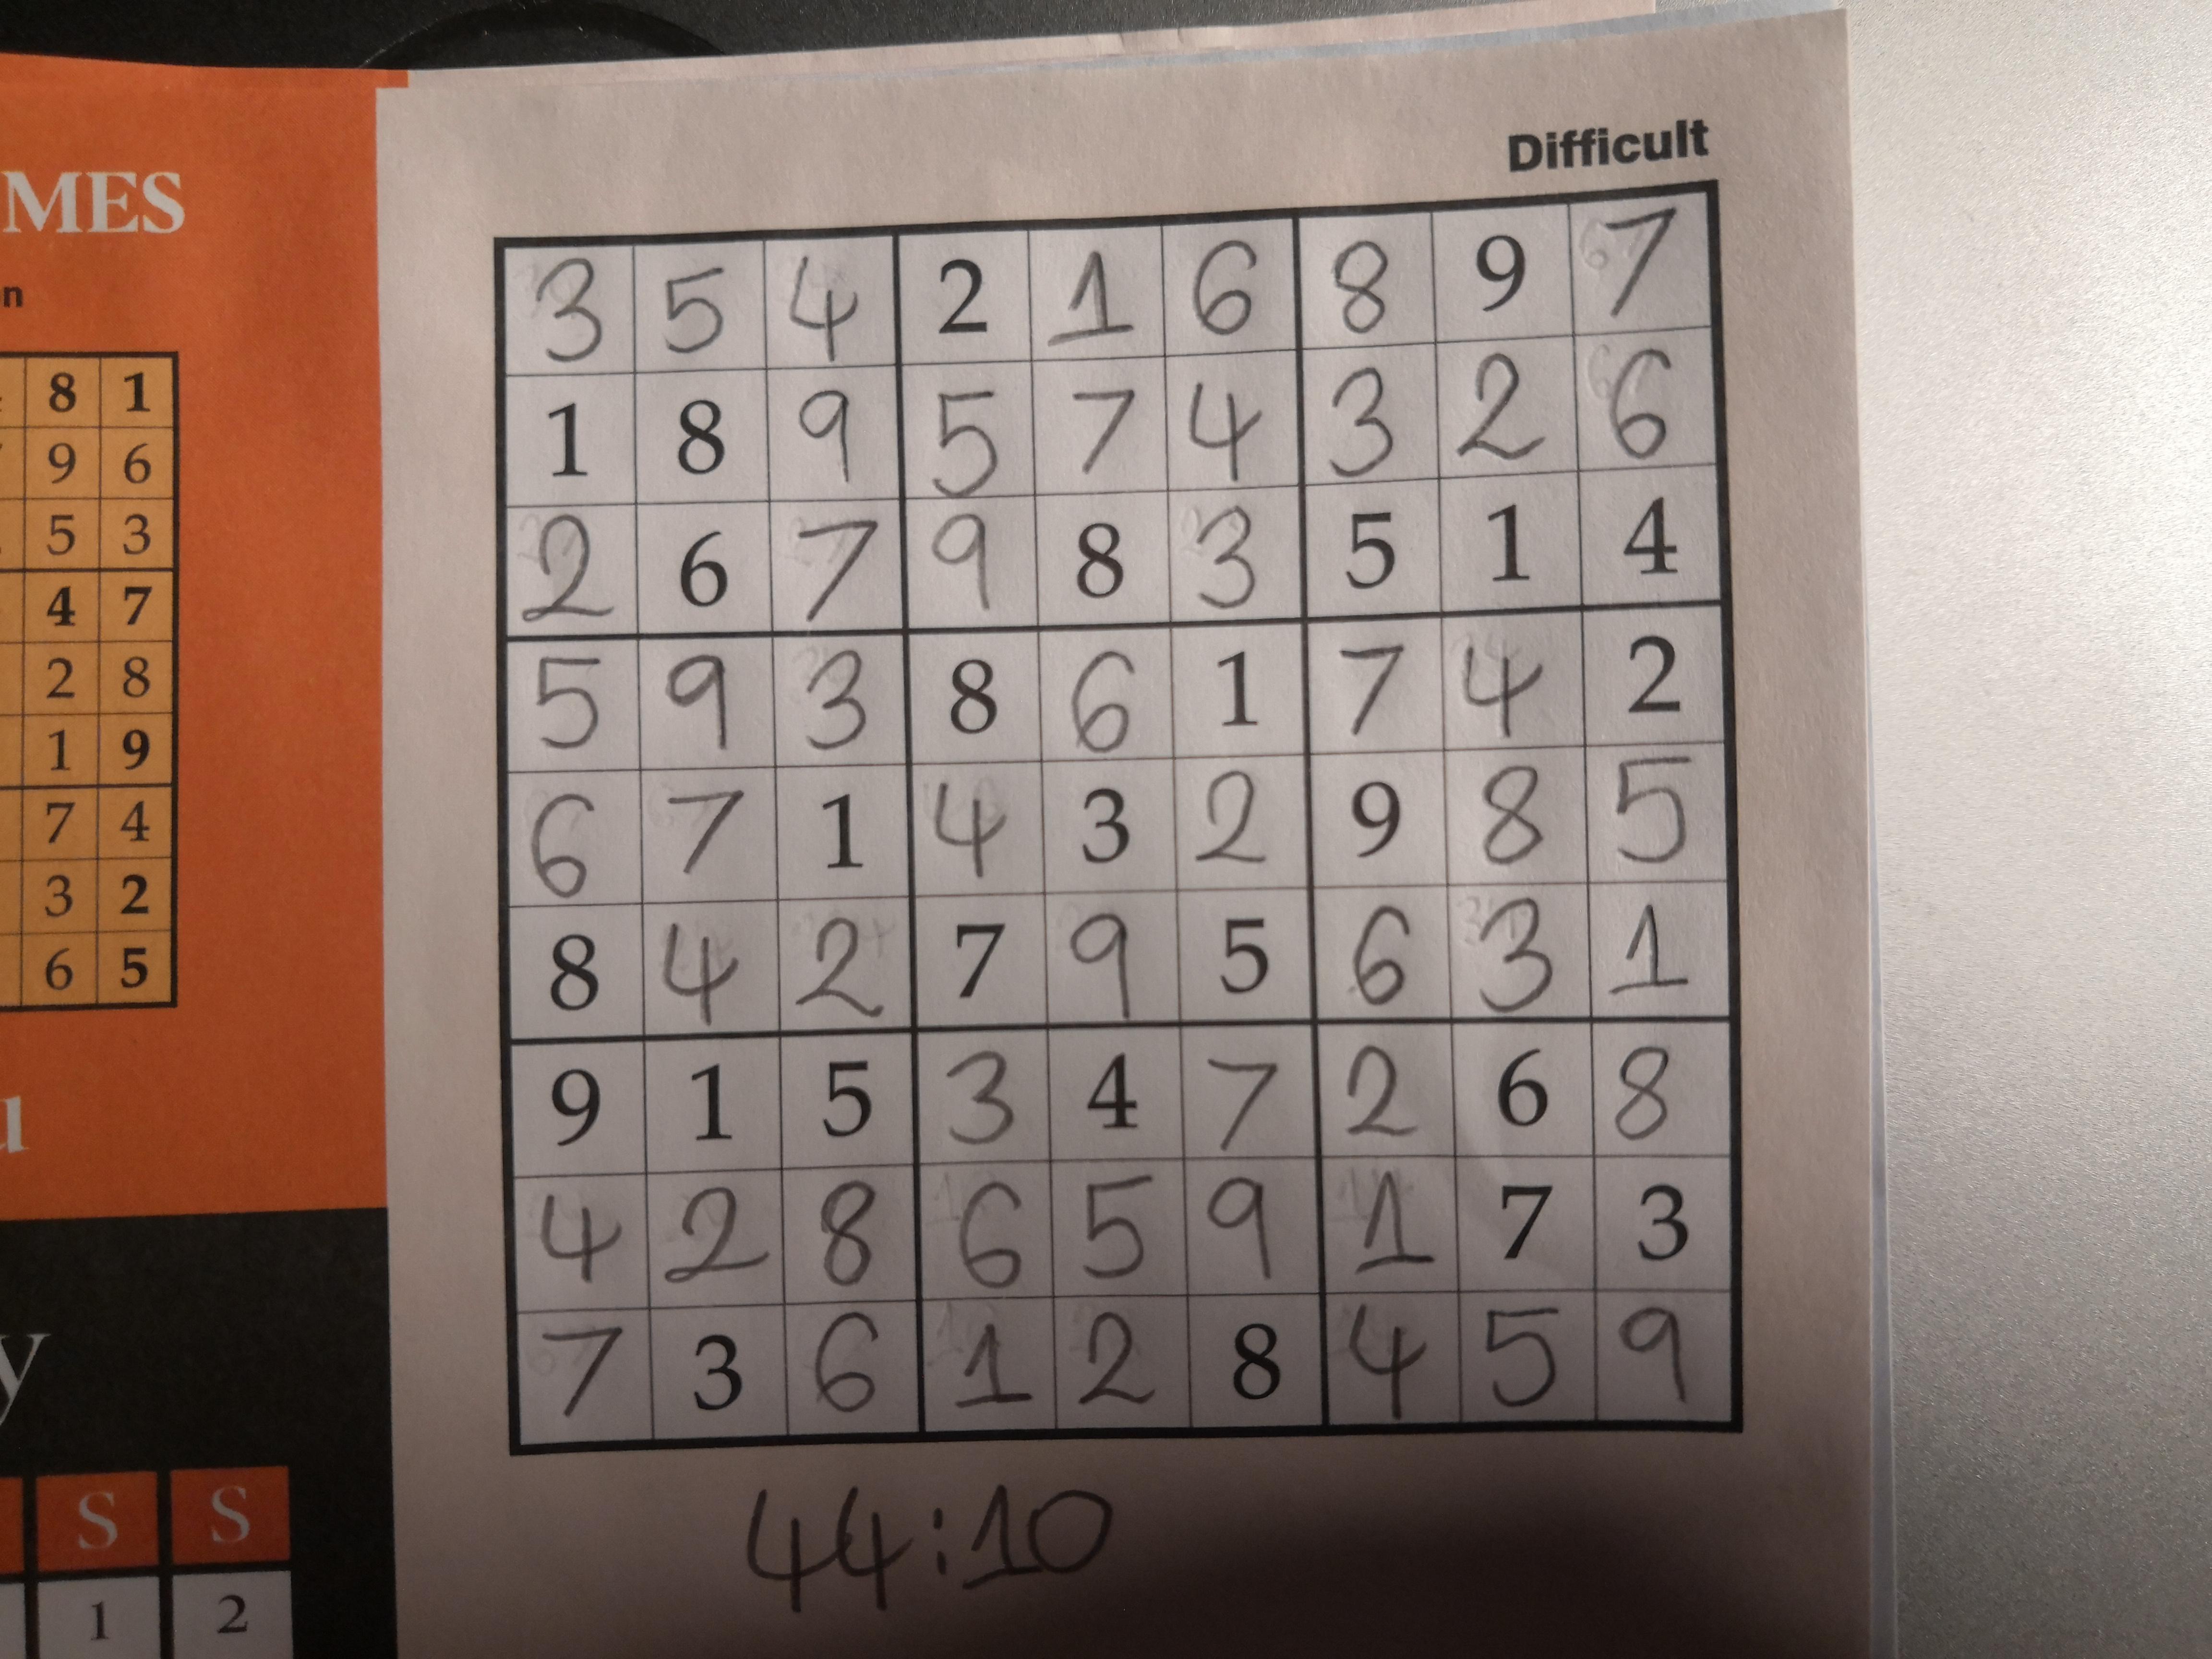 Difficult
MES
n
8 1
9 6
5 3
4 7
2 8
1 9
7 4
3 2
6 5
y
S S
1 2
3 5 4 2 1 6 8 9 7
1 8 9 5 7 4 3 2 6
2 6 7 9 8 3 5 1 4
5 9 3 8 6 1 7 4 2
6 7 1 4 3 2 9 8 5
8 4 2 7 9 5 6 3 1
9 1 5 3 4 7 2 6 8
4 2 8 6 5 9 1 7 3
7 3 6 1 2 8 4 5 9
44:10